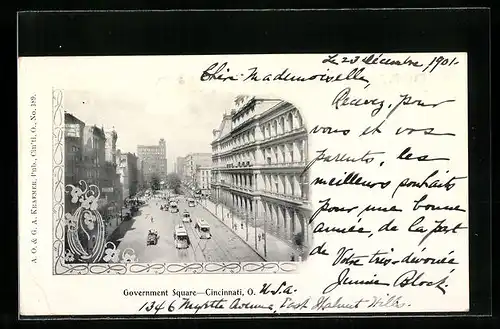 Le 23 Décembre 1901.
Chère Mademoiselle,
Recevez, pour
vous et vos
parents, les
meilleurs souhaits
pour une bonne
année, de la part
de Votre très-dévouée
Jennie Block.
A. O. & G. A. KRAEMER, Pub., Cin'ti, O., No. 189.
Government Square—Cincinnati, O. U.S.A.
1346 Myrtle Avenue, East Walnut Hills.